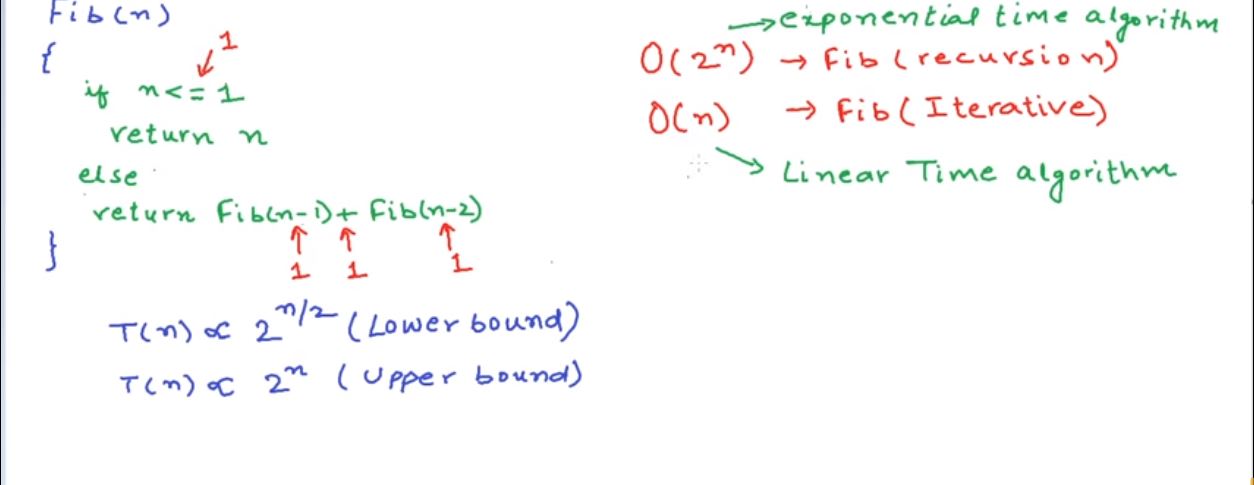 Fib(n)
{
1
if n<=1
return n
else
return Fib(n-1)+Fib(n-2)
1 1 1
}
T(n) ∝ 2^n/2 (Lower bound)
T(n) ∝ 2^n (Upper bound)
→ exponential time algorithm
O(2^n) → Fib(recursion)
O(n) → Fib(Iterative)
Linear Time algorithm